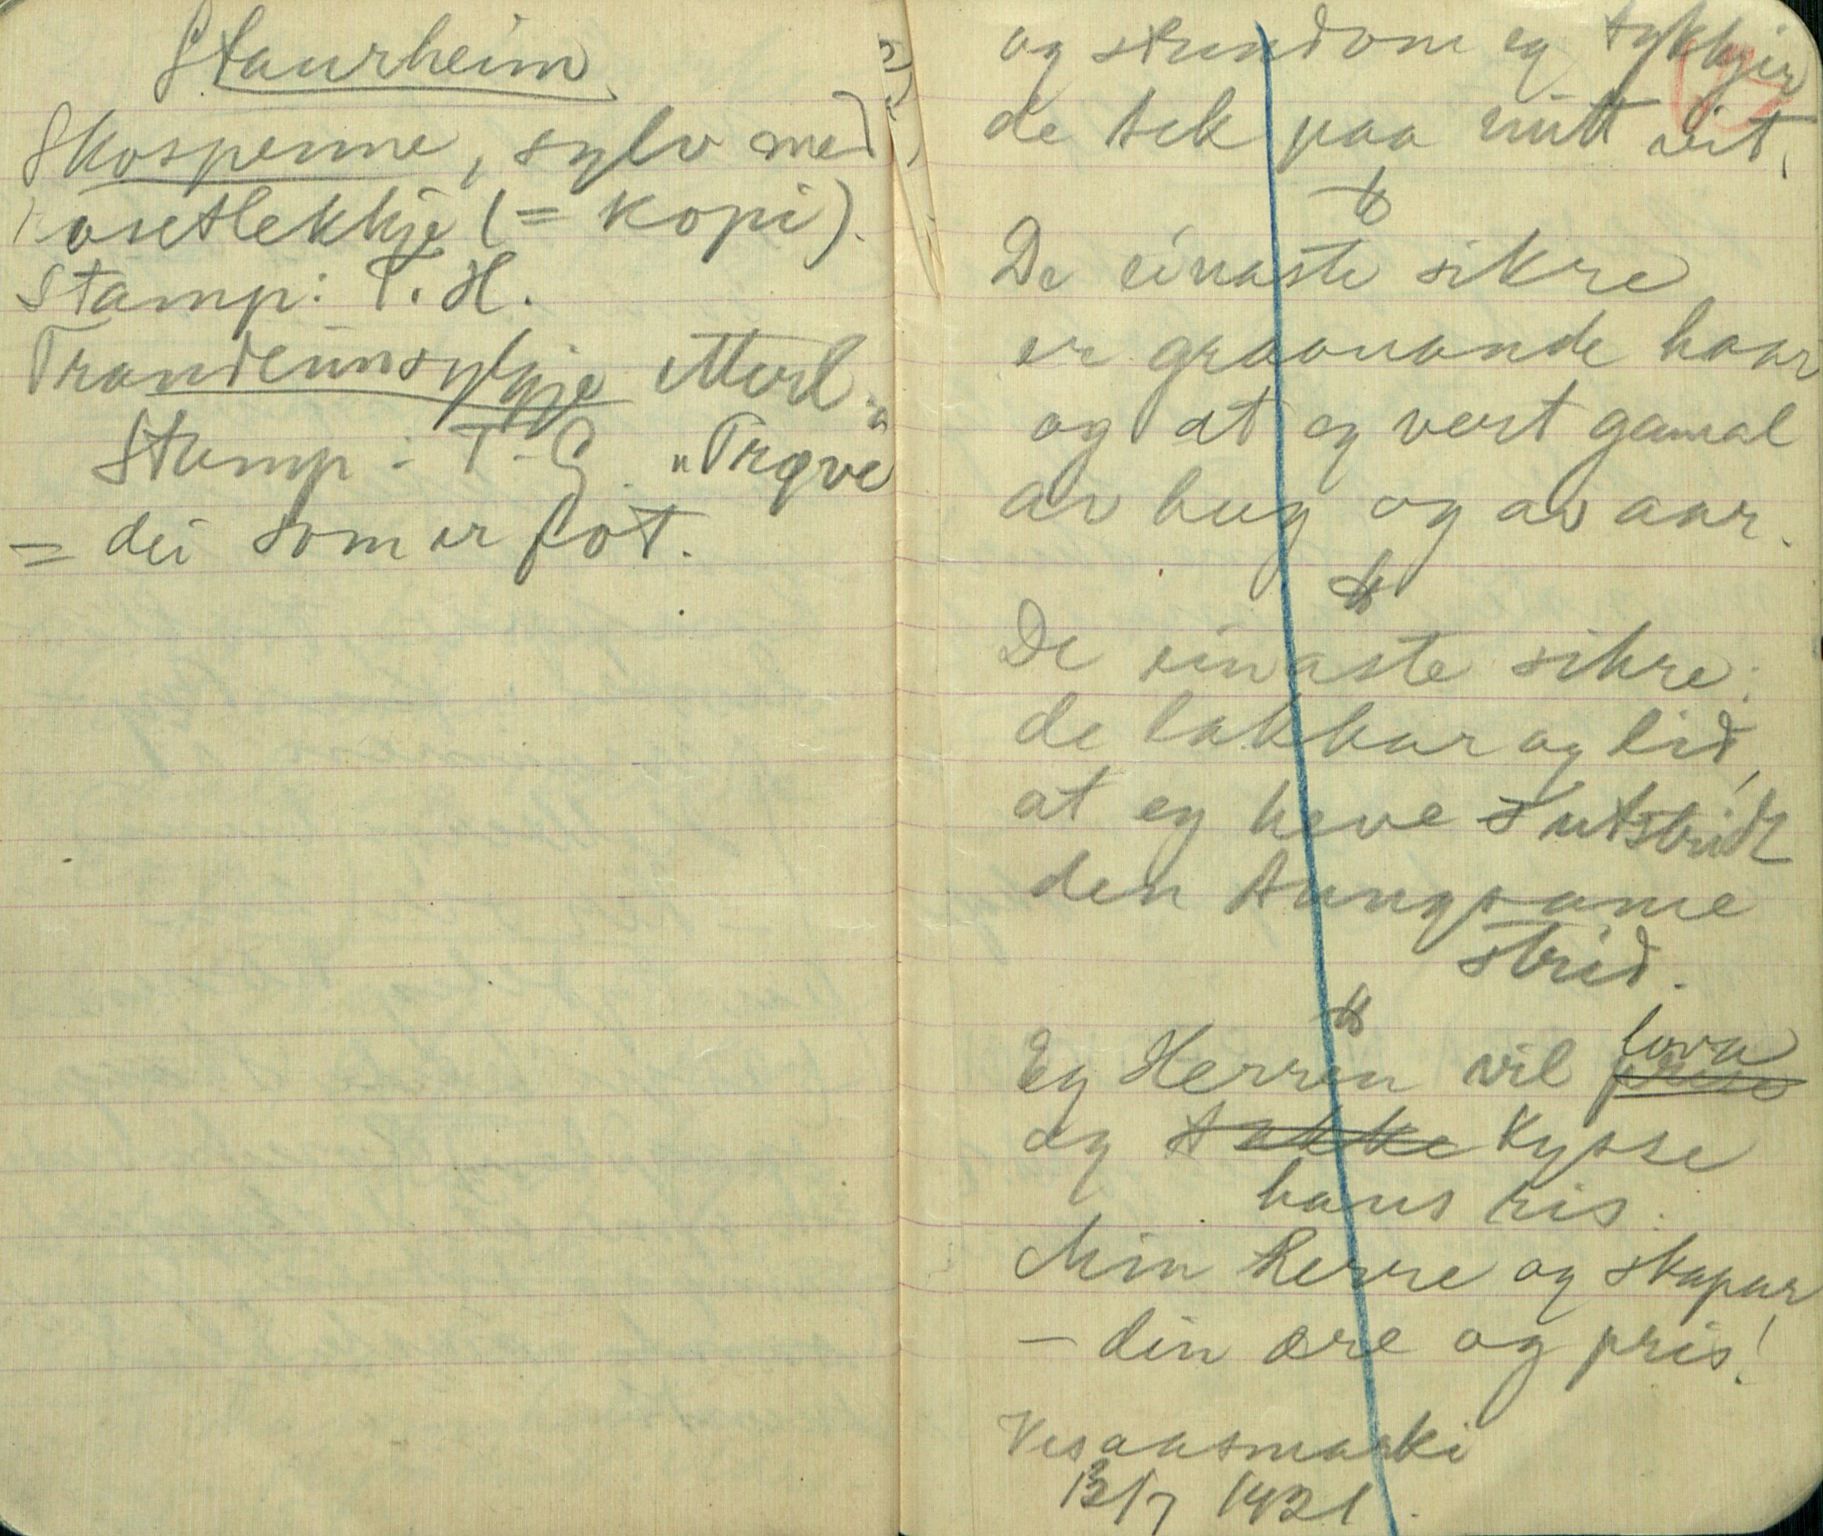 Staurheim
Skospenne, sylv med
rosetlekkje (= kopi).
Stamp: T. H.
Trondeimsylgje etterl.
Stamp: T. G. "Prøve"
= dei som er flot.
og stundom eg tykkjer
de tek paa mitt vit.
De einaste sikre
er graanande haar
og at eg vert gamal
av hug og av aar.
De einaste sikre:
de lakkar og lid,
at eg heve s utstridt
den tungsame
strid.
lova
Eg Herren vil prise
og takke kysse
hans ris.
Min Herre og skapar
– din ære og pris!
Vesaasmarki
12/7 1921.